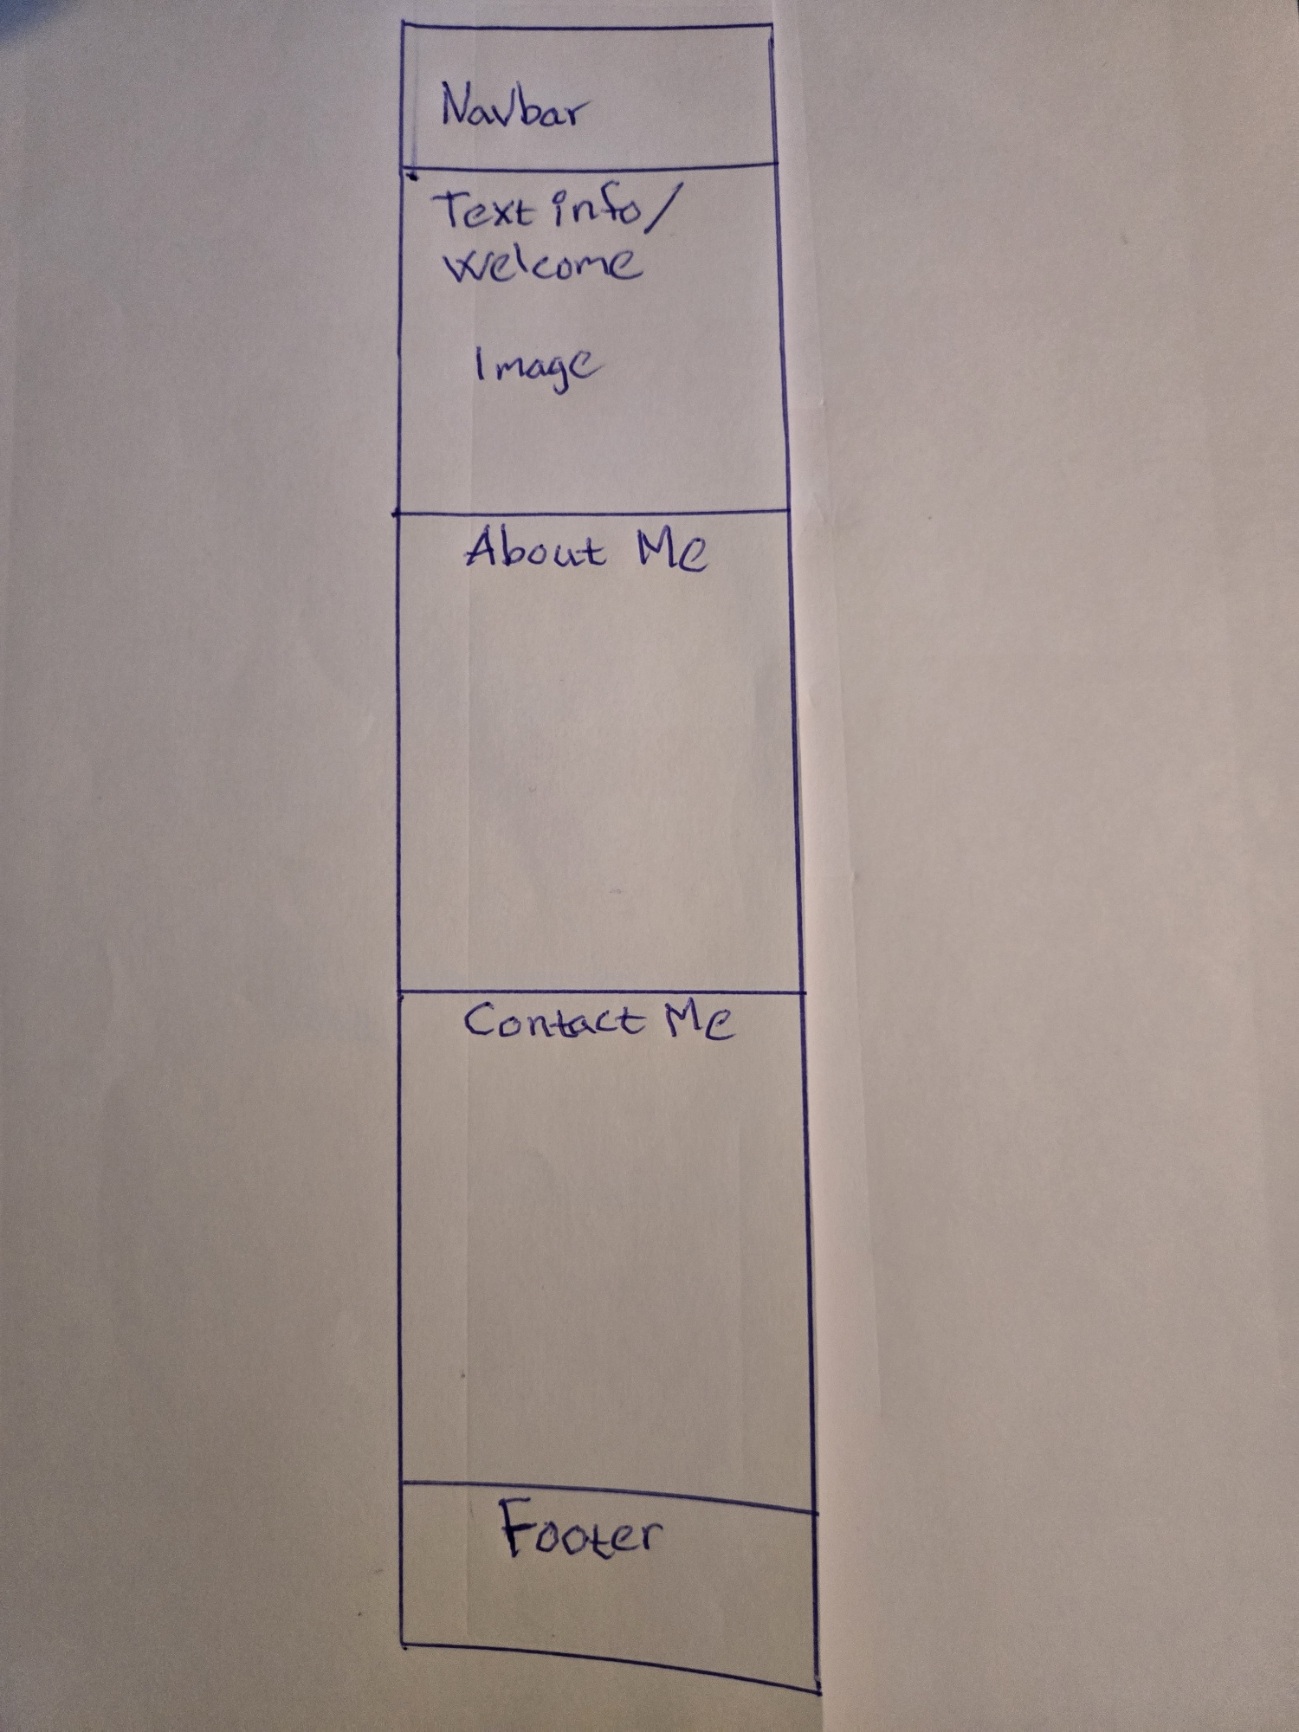 Navbar
Text info/
welcome
Image
About Me
Contact Me
Footer